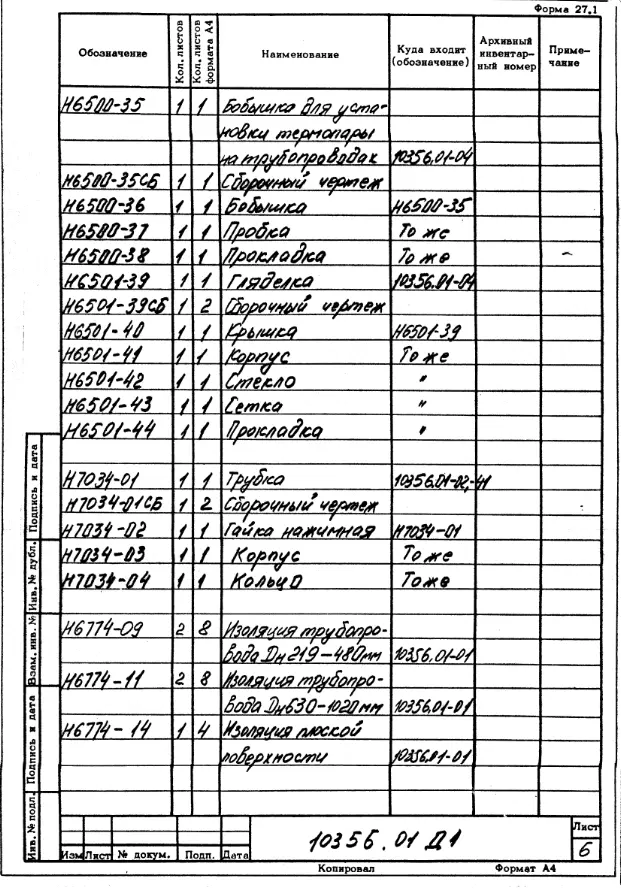 Форма 27.1
Обозначение Кол. листов Кол. листов формата А4 Наименование Куда входит (обозначение) Архивный инвентарный номер Примечание
Н6500-35 1 1 Бобышка для уста-
новки термопары
на трубопроводах 10356.01-04
Н6500-35СБ 1 1 Сборочный чертеж
Н6500-36 1 1 Бобышка Н6500-35
Н6500-37 1 1 Пробка То же
Н6500-38 1 1 Прокладка То же
Н6501-39 1 1 Гляделка 10356.01-04
Н6501-39СБ 1 2 Сборочный чертеж
Н6501-40 1 1 Крышка Н6501-39
Н6501-41 1 1 Корпус То же
Н6501-42 1 1 Стекло "
Н6501-43 1 1 Сетка "
Н6501-44 1 1 Прокладка "
Н7034-01 1 1 Трубка 10356.01-02,-41
Н7034-01СБ 1 2 Сборочный чертеж
Н7034-02 1 1 Гайка нажимная Н7034-01
Н7034-03 1 1 Корпус То же
Н7034-04 1 1 Кольцо То же
Н6774-09 2 8 Изоляция трубопро-
вода Dн219-480мм 10356.01-01
Н6774-11 2 8 Изоляция трубопро-
вода Dн630-1020мм 10356.01-01
Н6774-14 1 4 Изоляция плоской
поверхности 10356.01-01
Подпись и дата
Инв. № дубл.
Взам. инв. №
Подпись и дата
Инв. № подл.
Изм Лист № докум. Подп. Дата
10356.01 Д1
Лист
6
Копировал Формат А4